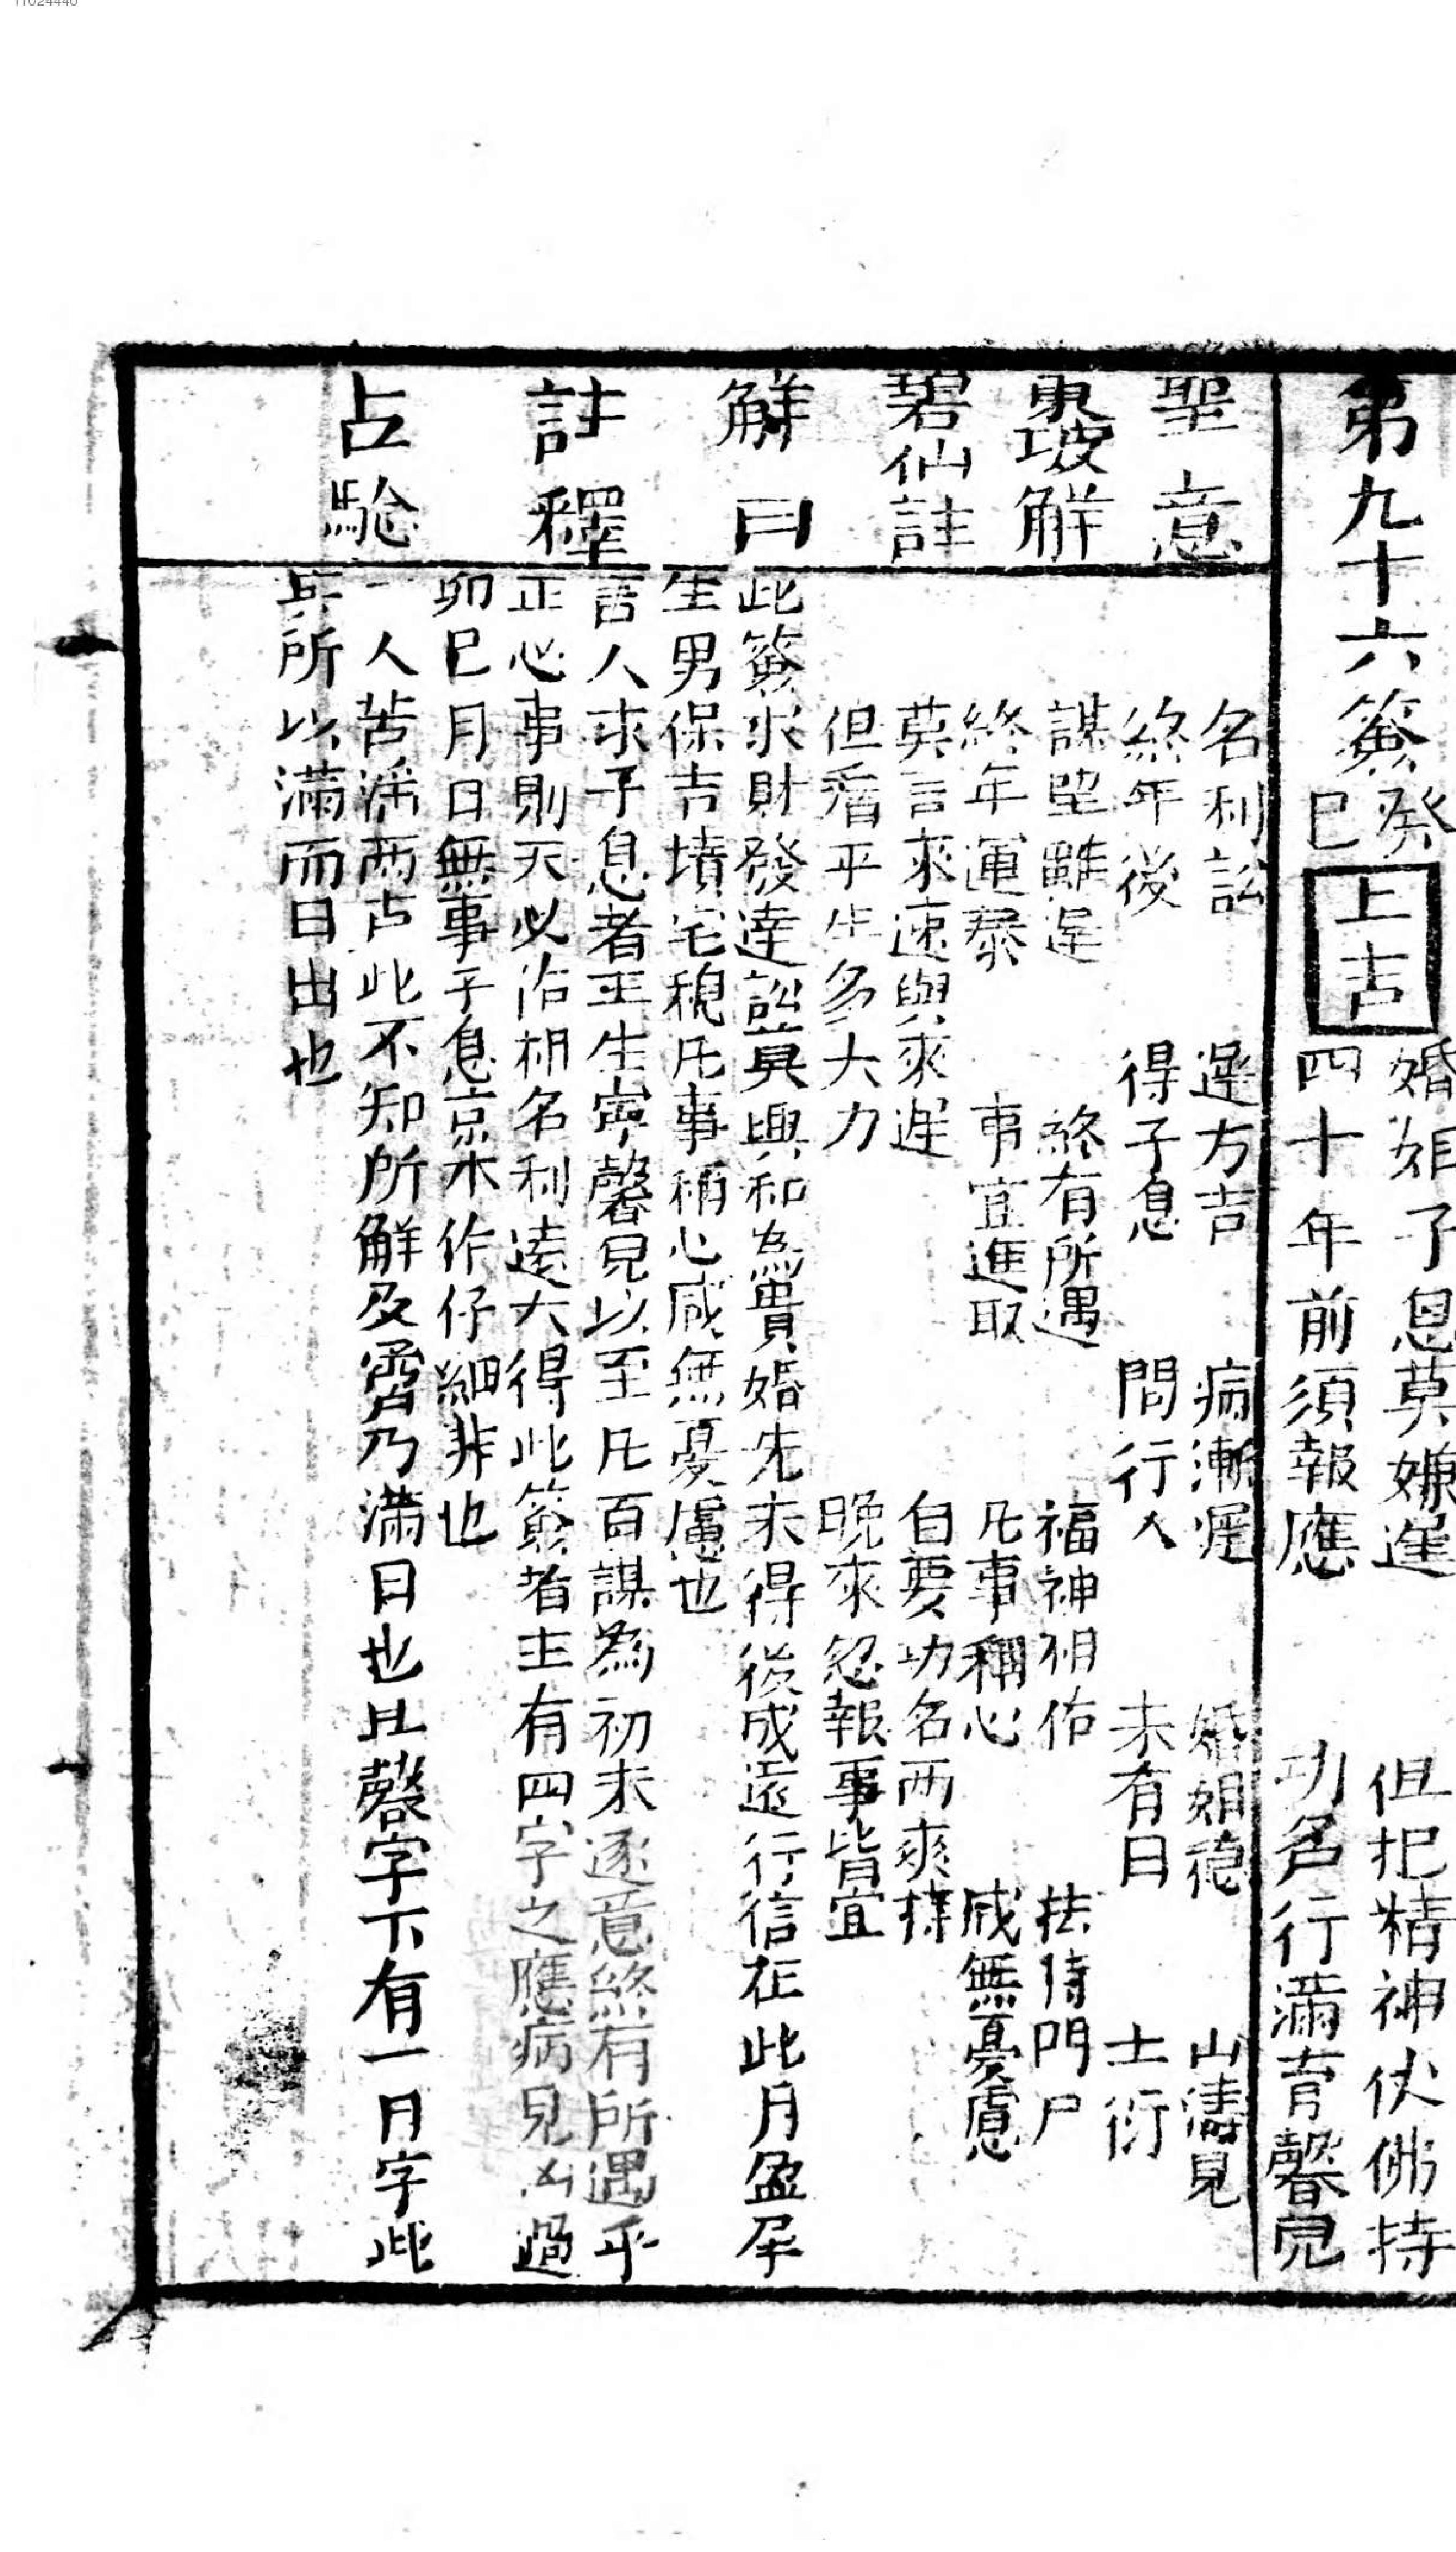 第九十六簽癸巳 上吉
婚姻子息莫嫌遲 但把精神仗佛持
四十年前須報應 功名行滿育馨兒
聖意
名利訟 遲方吉 病漸遲 婚姻穩 山濤見
終年後 得子息 問行人 未有日 士衍
東坡解
謀望雖遲 終有所遇 福神相佑 扶持門戶
終年運泰 事宜進取 凡事稱心 咸無憂慮
碧仙註
莫言來速與來遲 自要功名兩來擇
但看平生多大力 晚來忽報事皆宜
解曰
此簽求財發達訟莫興和為貴婚先未得後成遠行信在此月盈孕
生男保吉墳宅穩凡事稱心咸無憂慮也
註釋
言人求子息者主生寧馨兒以至凡百謀為初未逐意終有所遇乎
正心事則天必佑相名利遠大得此簽者主有四字之應病見凶過
卯巳月日無事子息京木作仔細非也
占驗
一人苦滛雨占此不知所解及霽乃滿日也且馨字下有一月字此
兵所以滿而日出也